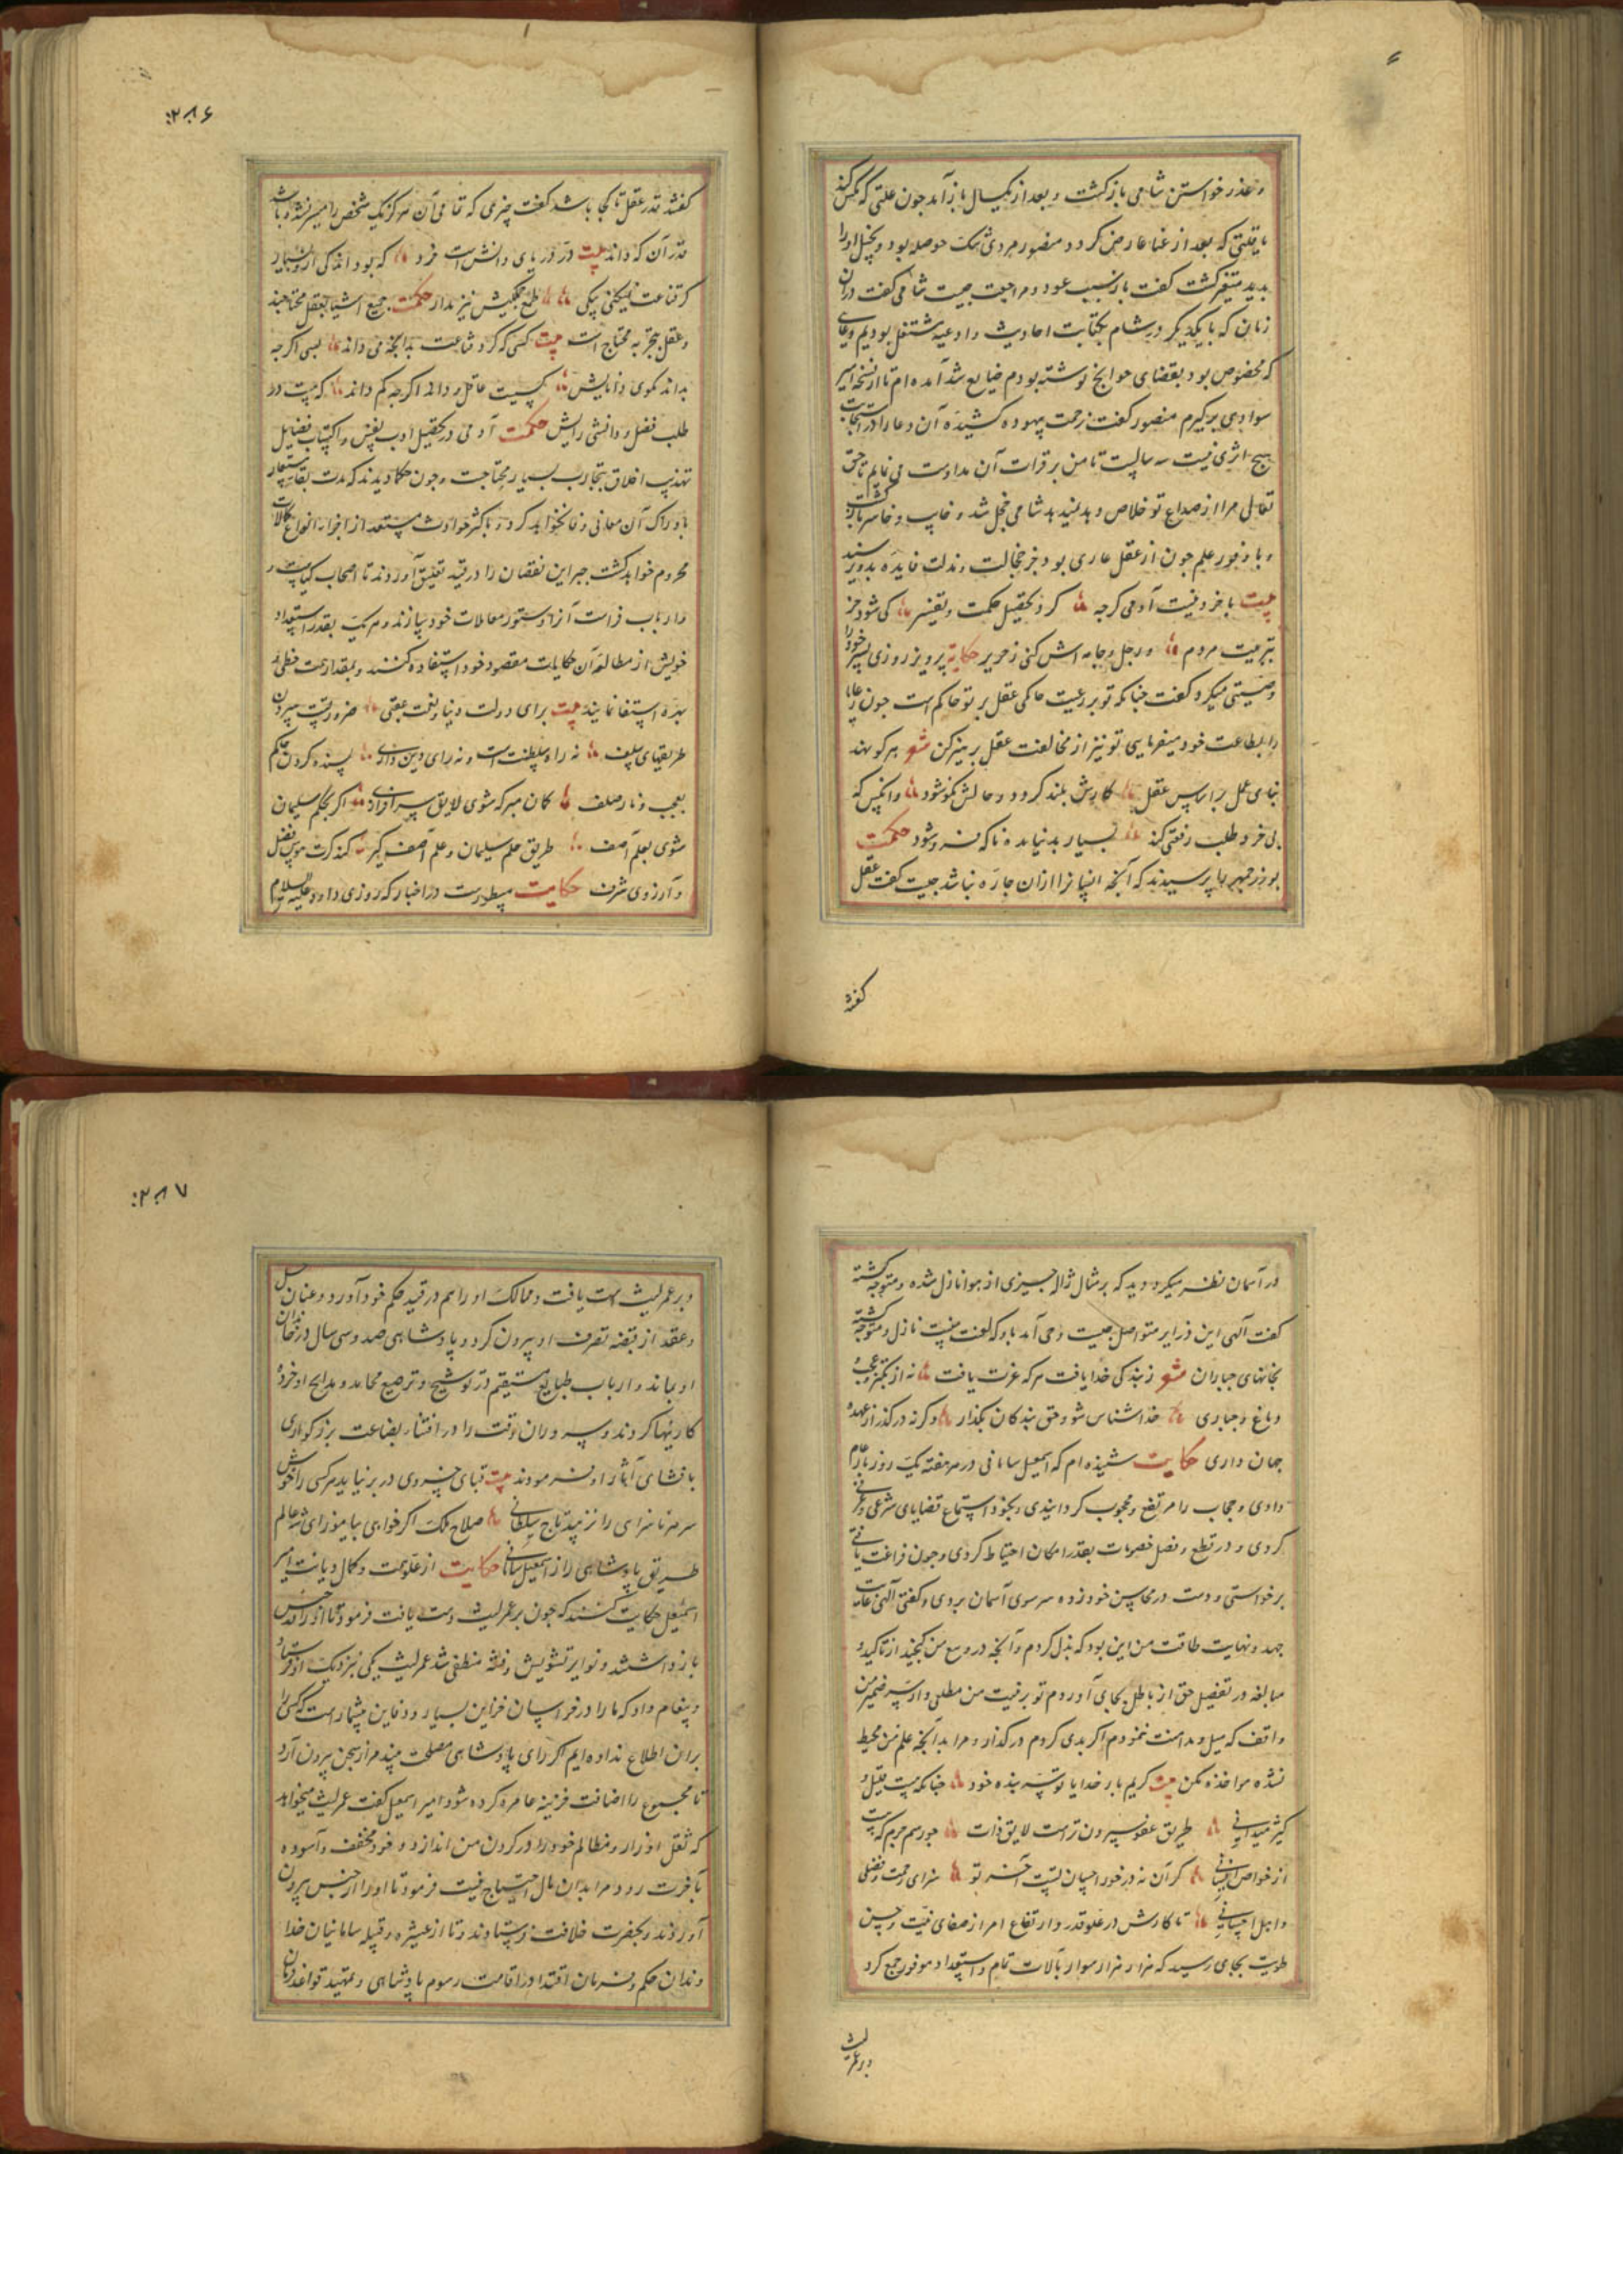 و عذر خواستن شامی بازگشت و بعد از یکسال باز آمد چون علتی که
یا قلتی که بعد از غنا عارض کردد منصور مردی تنک حوصله بود و بخیل او را
بدید متغیر کشت کفت باز سبب عود و مراجعت چیست شامی کفت در آن
زمان که با یکدیکر در شام بکتابت احادیث و ادعیه مشتغل بودیم دعای
که مخصوص بود بقضای حوایج نوشته بودم ضایع شد آمده ام تا از نسخه امیر
سوادی برگیرم منصور کفت زحمت بیهوده کشیده آن دعا را در استجابت
هیچ اثری نیست سه سالیست تا من بر قرات آن مداومت می نمایم تا حق
تعالی مرا از صداع تو خلاص دهد نمیدهد شامی خجل شد و خایب و خاسر بازگشت
و با وفور علم چون از عقل عاری بود جز خجالت و مذلت فایده بدو نرسید
بیت با خرد نیست آدمی کرچه کرد تحصیل حکمت و تفسیر کی شود خر
بتربیت مردم ور جل و جامه اش کنی ز حریر حکایة پرویز روزی پسر خود را
وصیتی میکرد کفت چنانکه تو بر رعیت حاکمی عقل بر تو حاکم است چون رعایا
را بطاعت خود میفرمایی تو نیز از مخالفت عقل پرهیز کن شعر هر کو نهد
بنای عمل بر اساس عقل کارش بلند کردد و حالش نکو شود وانکس که
بی خرد طلب رفعتی کند بسیار بد نیابد و ناکه فرو شود حکمت
بوزرجمهر را پرسیدند که آنچه انسانرا ازان چاره نباشد چیست کفت عقل
کفتند
۲۸۶
کفتند قدر عقل تا کجا باشد کفت چیزی که تمامی آن هرکز یک شخص را میسر نشد و باشد
قدر آن که داند بیت در دریای دانش است خرد که بود اندکی از و بسیار
کر قناعت نمیکنی بیکی طمع جملکیش نیز مدار حکمت جمیع اشیا بعقل محتاجند
و عقل بتجربه محتاج است بیت کسی که کرد قناعت بدانچه می داند بسی اکرچه
بداند مکوی دانایش کسیست عاقل و دانا اکرچه کم داند که هست در
طلب فضل و دانشی رایش حکمت آدمی در تحصیل ادب نفس و اکتساب فضایل
تهذیب اخلاق بتجارب بسیار محتاجست و چون حکما دیدند که مدت بقا مستعار
بادراک آن معانی وفا نخواهد کرد و باکثر حوادث مستعد از اجزا انواع کمالات
محروم خواهد کشت جبر این نقصان را در قید تعلیق آوردند تا اصحاب کیاست
و ارباب فراست آنرا دستور معاملات خود سازند و هر یک بقدر استعداد
خویش از مطالعه آن حکایات مقصود خود استفاده کنند و بمقدار همت حظی و
بهره استیفا نمایند بیت برای دولت دنیا و نعمت عقبی ضرورتست سپردن
طریقهای سلف نه راه سلطنت است و نه رای دین داری پسنده کردن حکم
بعجب و ناز صلف کمان مبر که شوی لایق سرافرازی اکر بحکم سلیمان
شوی بعلم آصف طریق حلم سلیمان و علم آصف کیر کند کرت هوس فضل
و آرزوی شرف حکایت مسطورست در اخبار که روزی داود علیه السلام
در آسمان نظر میکرد و دید که بر مثال ژاله چیزی از هوا نازل شده و متوجه کشته
کفت آلهی این ذرایر متواصل چیست وحی آمد باو که لعنت منست نازل و متوجه کشته
بخانهای جباران شعر ز بندکی خدا یافت هر که عزت یافت نه از تکبر و عجب و
دماغ و جباری خداشناس شو و حق بندکان بکذار وکرنه درکذر از عهده
جهان داری حکایت شنیده ام که اسمعیل سامانی در هر هفته یک روز بار عام
دادی و حجاب را مرتفع و محجوب کردانیدی و بخود استماع قضایای شرعی و عرفی
کردی و در قطع و فصل خصومات بقدر امکان احتیاط کردی و چون فراغت یافتی
برخواستی و دست در محاسن خود زده سر سوی آسمان بردی و کفتی آلهی غایت
جهد و نهایت طاقت من این بود که بذل کردم و آنچه در وسع من کنجید از تاکید و
مبالغه در تفصیل حق از باطل بجای آوردم تو بر نیت من مطلعی و از سر ضمیر من
واقف که میل و مداهنت ننمودم اکر بدی کردم درکذار و مرا بدانچه علم من محیط
نشده مواخذه مکن بیت کریم بار خدایا تو سر بنده خود چنانکه هست قلیل و
کثیر میدانی طریق عفو سپردن تراست لایق ذات چو رسم جرم که هست
از خواص انسانی کر آن نه در خور احسان تست آخر تو سزای رحمت و فضلی
و اهل احسانی تا کارش در علو قدر و ارتفاع امر از صفای نیت و حسن
طویت بجای رسید که هزار هزار سوار بآلات تمام و استعداد موفور جمع کرد
و بر عمر لیث
۲۸۷
و بر عمر لیث دست یافت و ممالک او را هم در قید حکم خود آورد و عنان حل
و عقد از قبضه تصرف او بیرون کرد و پادشاهی صد و سی سال در خاندان
او بماند و ارباب طبایع مستقیم در توشیح و ترصیع محامد و مدایح او خرده
کاریها کردند و سروران وقت را در اقتناء بضاعت بزرکواری
باقتدای آثار او فرمودند بیت قبای خسروی در بر نیاید هر کسی را خوش
سر هر ناسزای را نزیبد تاج سلطانی صلاح ملک اکر خواهی بیاموز ای شه عالم
طریق پادشاهی را ز اسمعیل سامانی حکایت از علو همت و کمال دیانت امیر
اسمعیل حکایت کنند که چون بر عمر لیث دست یافت فرمود تا او را در حبس
باز داشتند و نوایر تشویش و فتنه منطفی شد عمر لیث یکی نزدیک او فرستاد
و پیغام داد که ما را در خراسان خزاین بسیار و دفاین بیشمارست که کسی را
بران اطلاع نداده ایم اکر رای پادشاهی مصلحت بیند مرا از سجن بیرون آرد
تا مجموع را اضافت خزینه عامره کرده شود امیر اسمعیل کفت عمر لیث میخواهد
که ثقل اوزار و مظالم خود را در کردن من اندازد و خود مخفف و آسوده
بآخرت رود مرا بدان مال احتیاج نیست فرمود تا او را از حبس بیرون
آوردند و بحضرت خلافت فرستادند و تا از عشیره و قبیله سامانیان خدا
وندان حکم و فرمان اقتدا در اقامت رسوم پادشاهی و تمهید قواعد